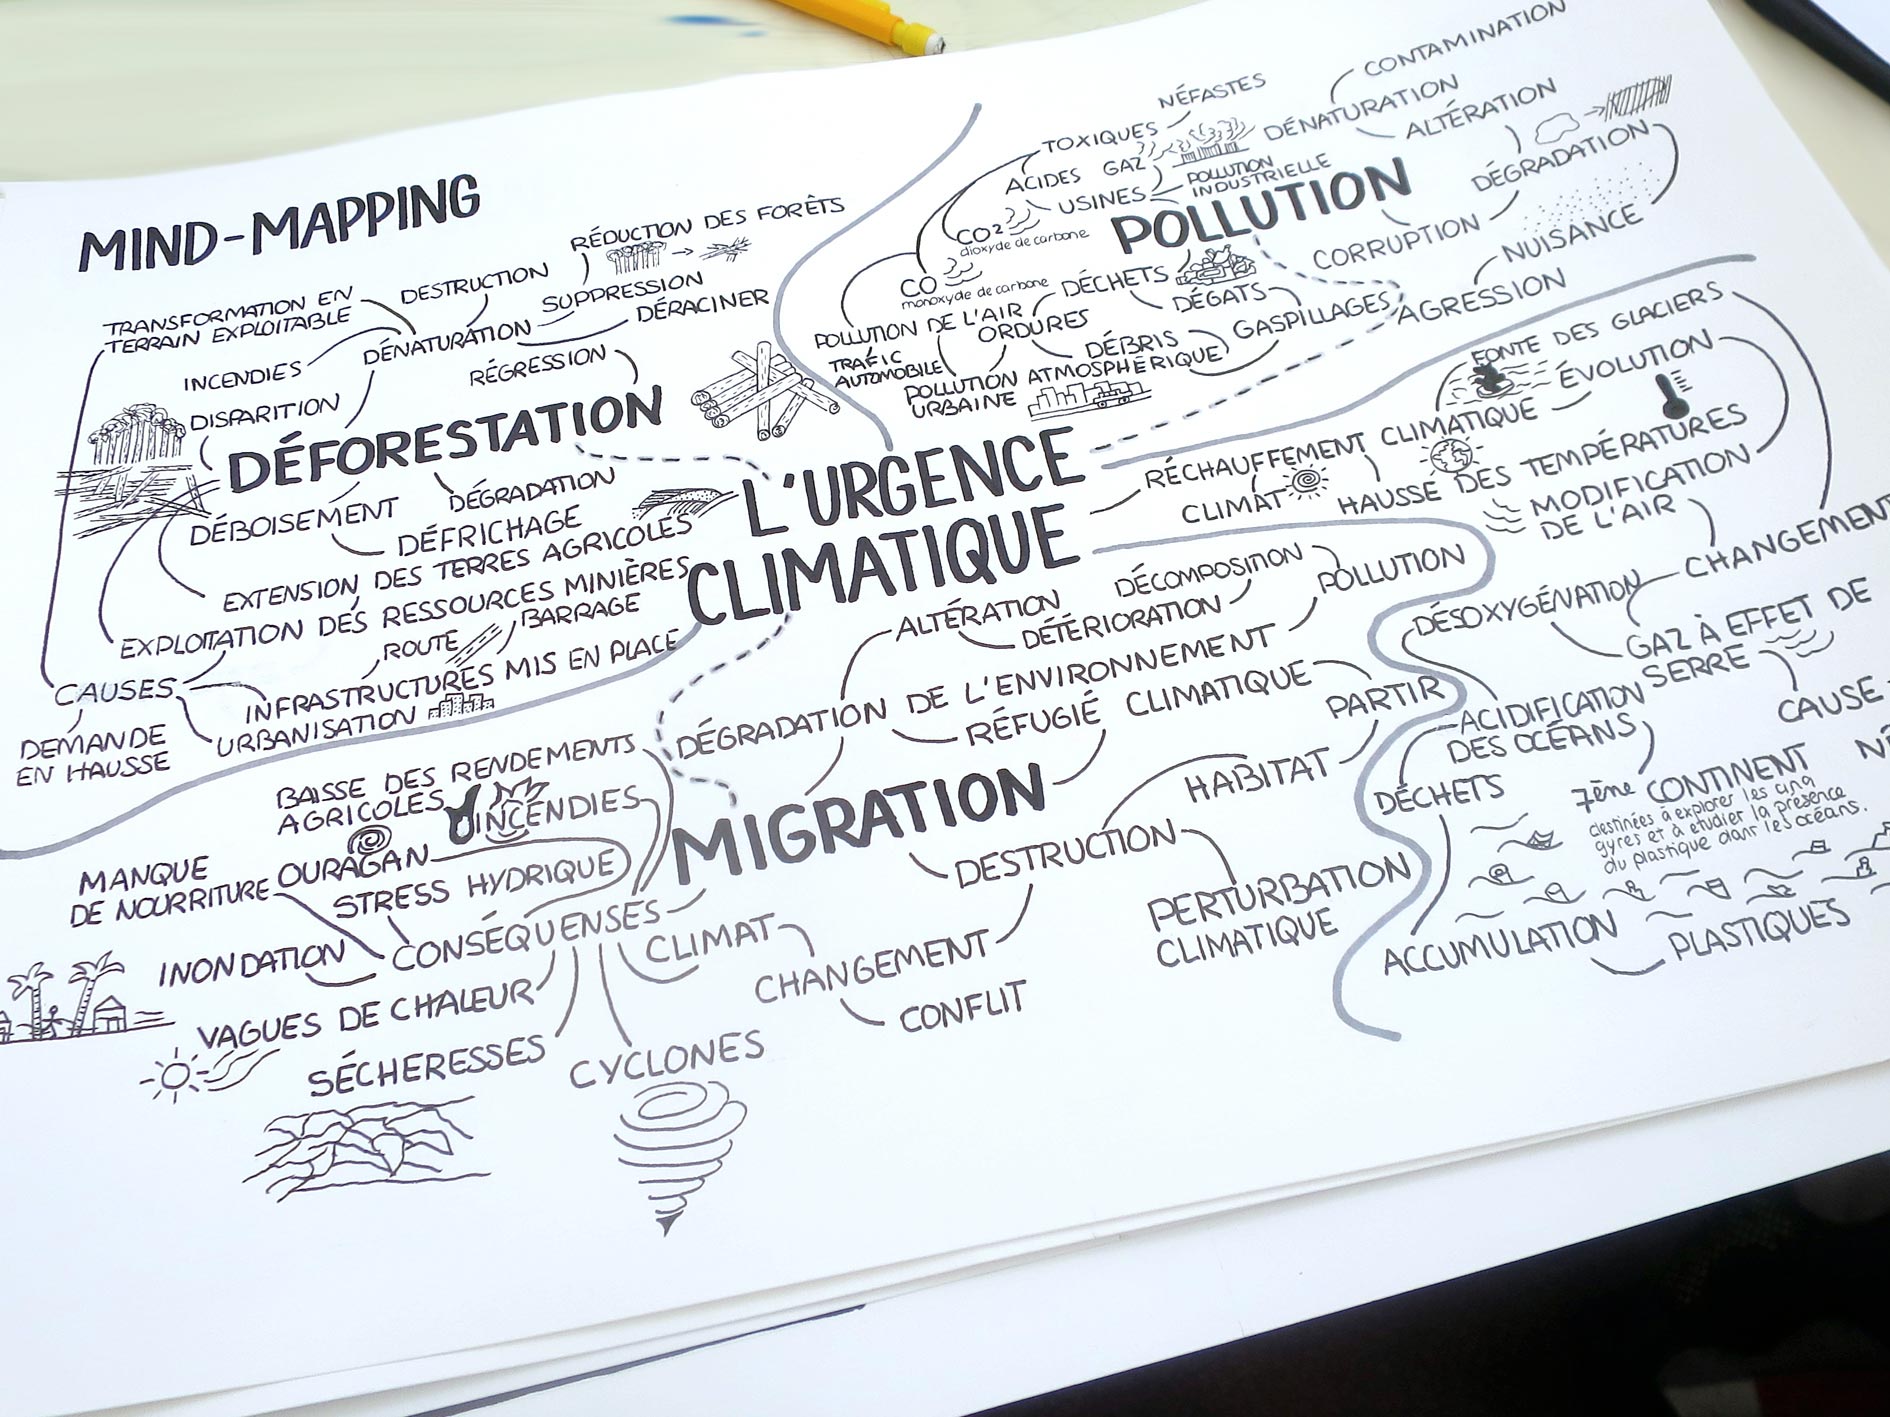 MIND-MAPPING
RÉDUCTION DES FORÊTS
DESTRUCTION
SUPPRESSION
DÉRACINER
TRANSFORMATION EN
TERRAIN EXPLOITABLE
DÉNATURATION
INCENDIES
RÉGRESSION
DISPARITION
DÉFORESTATION
DÉGRADATION
DÉBOISEMENT
DÉFRICHAGE
EXTENSION DES TERRES AGRICOLES
EXPLOITATION DES RESSOURCES MINIÈRES
BARRAGE
ROUTE
INFRASTRUCTURES MIS EN PLACE
CAUSES
URBANISATION
DEMANDE
EN HAUSSE
CONTAMINATION
NÉFASTES
DÉNATURATION
ALTÉRATION
TOXIQUES
ACIDES
GAZ
POLLUTION
INDUSTRIELLE
USINES
DÉGRADATION
POLLUTION
CO2
dioxyde de carbone
CORRUPTION
NUISANCE
CO
monoxyde de carbone
DÉCHETS
DÉGATS
AGRESSION
POLLUTION DE L'AIR
ORDURES
GASPILLAGES
TRAFIC
AUTOMOBILE
DÉBRIS
POLLUTION ATMOSPHÉRIQUE
URBAINE
L'URGENCE
CLIMATIQUE
FONTE DES GLACIERS
ÉVOLUTION
RÉCHAUFFEMENT CLIMATIQUE
CLIMAT
HAUSSE DES TEMPÉRATURES
MODIFICATION
DE L'AIR
CHANGEMENT
DÉSOXYGÉNATION
GAZ À EFFET DE
SERRE
CAUSE
ACIDIFICATION
DES OCÉANS
DÉCHETS
7ème CONTINENT
destinées à explorer les cinq
gyres et à étudier la présence
du plastique dans les océans.
ACCUMULATION
PLASTIQUES
DÉCOMPOSITION
POLLUTION
ALTÉRATION
DÉTÉRIORATION
DÉGRADATION DE L'ENVIRONNEMENT
RÉFUGIÉ CLIMATIQUE
PARTIR
HABITAT
MIGRATION
DESTRUCTION
PERTURBATION
CLIMATIQUE
BAISSE DES RENDEMENTS
AGRICOLES
INCENDIES
OURAGAN
MANQUE
DE NOURRITURE
STRESS HYDRIQUE
CONSÉQUENSES
CLIMAT
INONDATION
CHANGEMENT
CONFLIT
VAGUES DE CHALEUR
SÉCHERESSES
CYCLONES